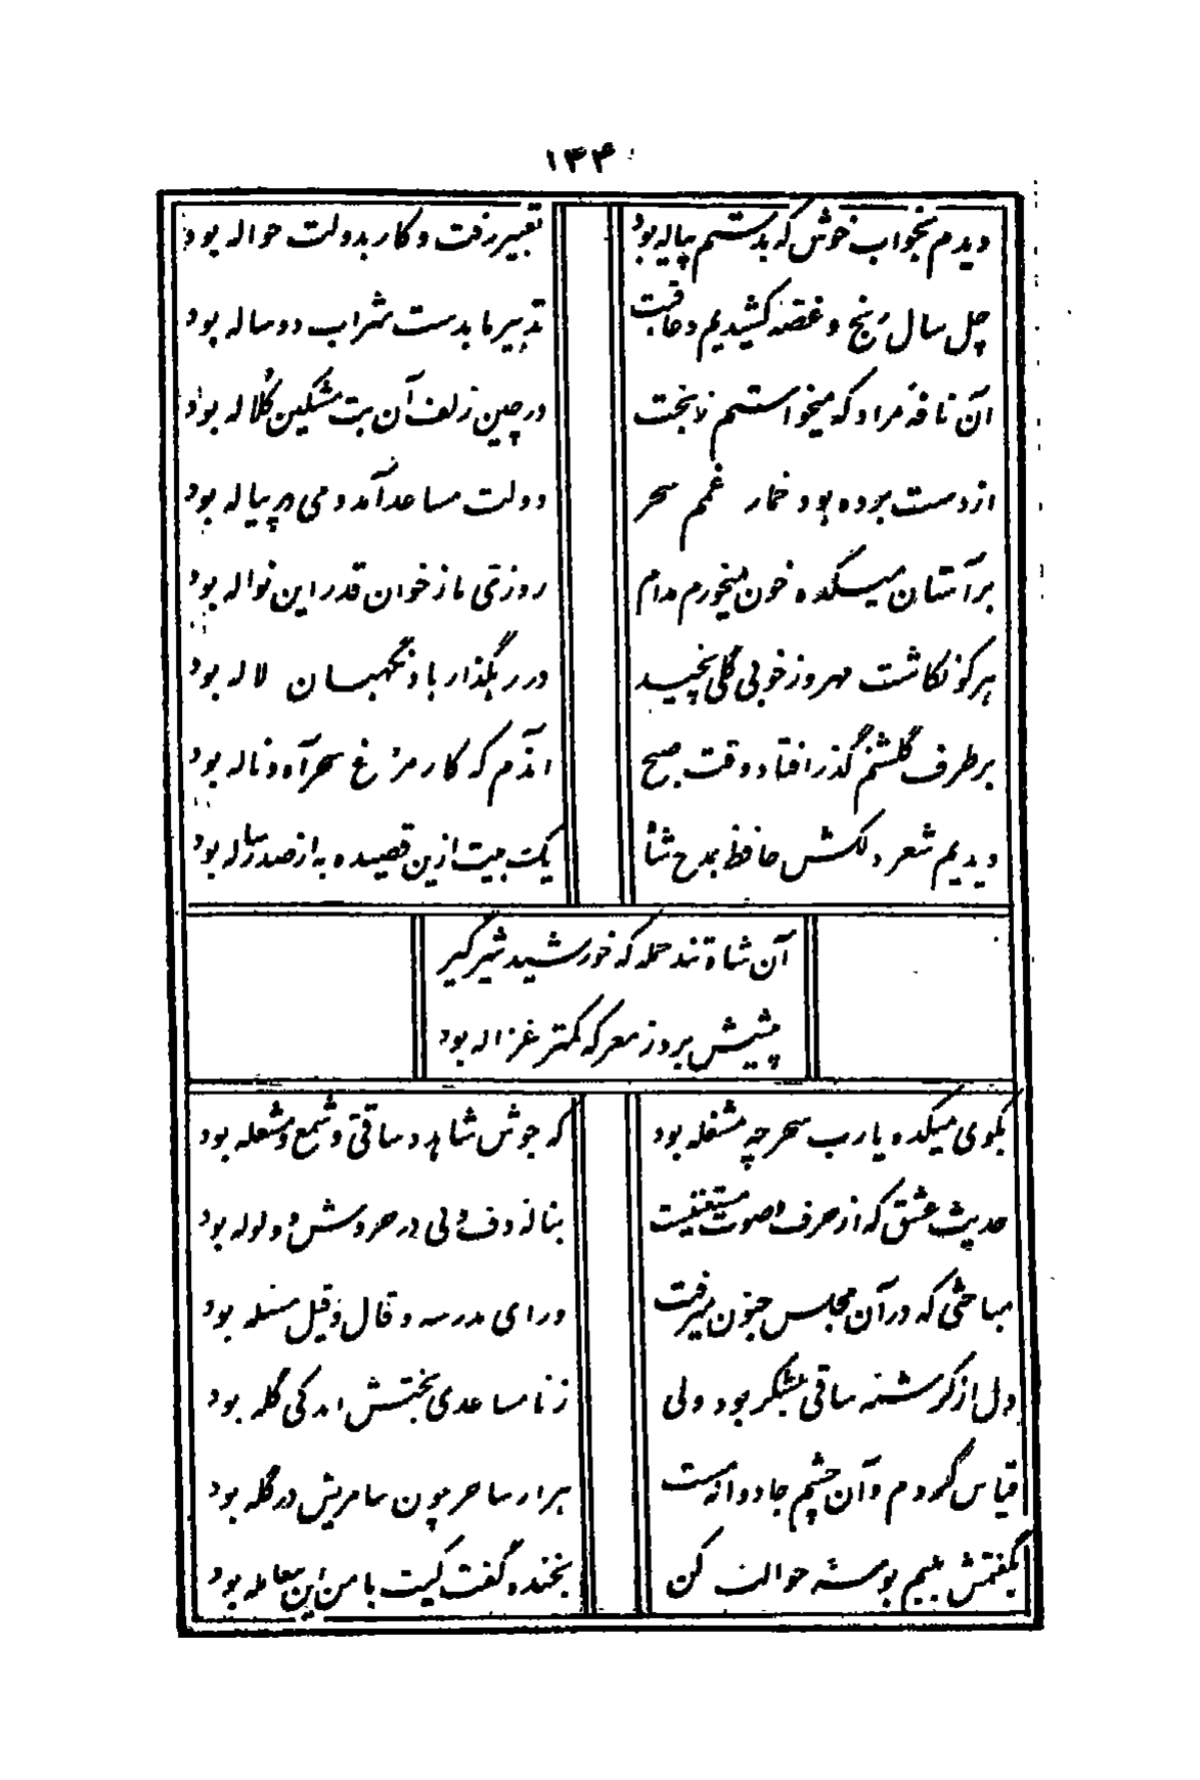 ۱۳۴
دیدم بخواب خوش که بدستم پیاله بود
تعبیر رفت و کار بدولت حواله بود
چل سال رنج و غصه کشیدیم و عاقبت
تدبیر ما بدست شراب دو ساله بود
آن نافه مراد که میخواستم ز بخت
در چین زلف آن بت مشکین کلاله بود
از دست برده بود خمار غمم سحر
دولت مساعد آمد و می در پیاله بود
بر آستان میکده خون میخورم مدام
روزی ما ز خوان قدر این نواله بود
هر کو نکاشت مهر و ز خوبی گلی نچید
در رهگذار باد نگهبان لاله بود
بر طرف گلشنم گذر افتاد وقت صبح
آندم که کار مرغ سحر آه و ناله بود
دیدیم شعر دلکش حافظ بمدح شاه
یک بیت ازین قصیده به از صد رساله بود
آن شاه تند حمله که خورشید شیرگیر
پیشش بروز معرکه کمتر غزاله بود
بکوی میکده یارب سحر چه مشغله بود
که جوش شاهد و ساقی و شمع و مشعله بود
حدیث عشق که از حرف و صوت مستغنیست
بناله دف و نی در خروش و ولوله بود
مباحثی که در آن مجلس جنون میرفت
ورای مدرسه و قال و قیل مسئله بود
دل از کرشمه ساقی بشکر بود ولی
ز نامساعدی بختش اندکی گله بود
قیاس کردم و آن چشم جادوانه مست
هزار ساحر چون سامریش در گله بود
بگفتمش بلبم بوسه حوالت کن
بخنده گفت کیت با من این معامله بود